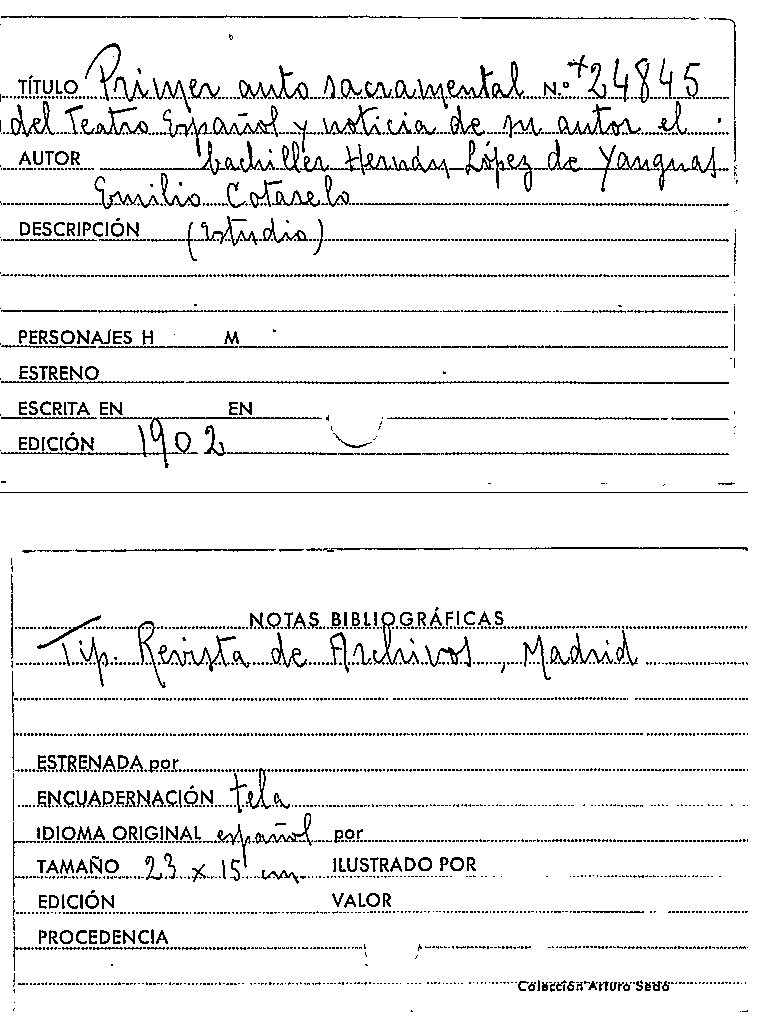 TÍTULO Primer auto sacramental N.º +24845
del Teatro Español y noticia de su autor el
AUTOR bachiller Hernán López de Yanguas
Emilio Cotarelo
DESCRIPCIÓN (Estudio)
PERSONAJES H M
ESTRENO
ESCRITA EN EN
EDICIÓN 1902
NOTAS BIBLIOGRÁFICAS
Tip. Revista de Archivos, Madrid
ESTRENADA por
ENCUADERNACIÓN tela
IDIOMA ORIGINAL español por
TAMAÑO 23 x 15 cm. ILUSTRADO POR
EDICIÓN VALOR
PROCEDENCIA
Colección Arturo Sedó